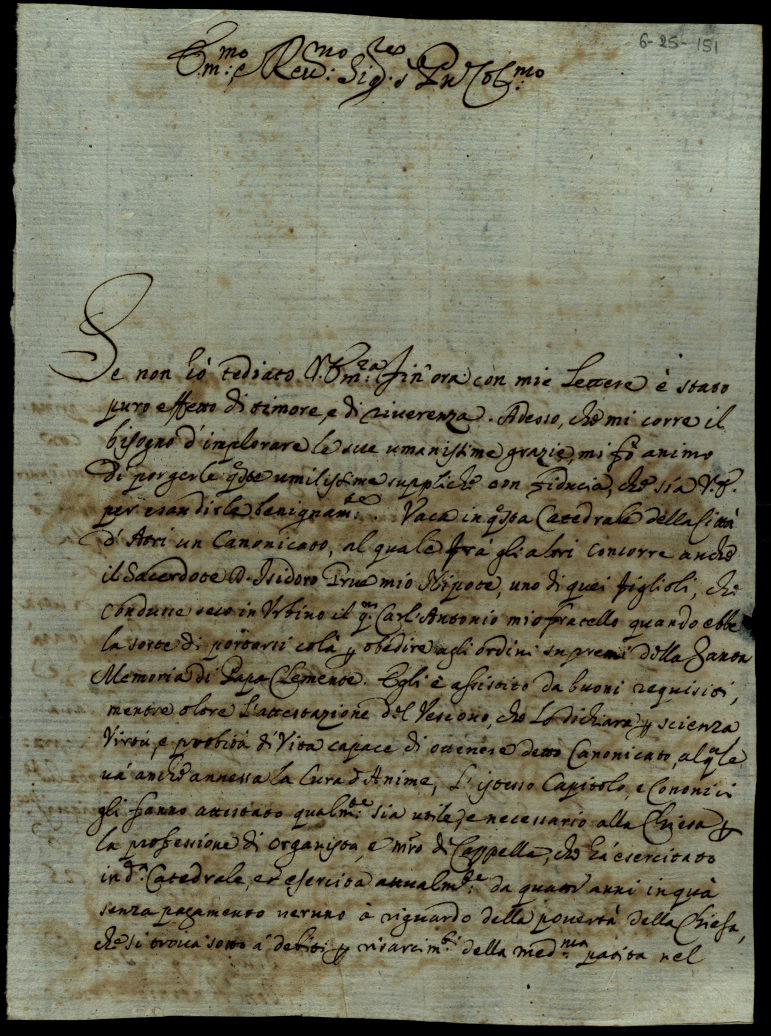 6-25-151
E.mo: e Rev.mo: Sig.re: e Pn Col.mo:
Se non hò tediato V. Em.za: fin'ora con mie Lettere è stato
puro effetto di timore, e di riverenza. Adesso, che mi corre il
bisogno d'implorare le sue umanissime grazie, mi fò animo
di porgerle q.ste umilissime suppliche con fiducia, che sia V. E.
per esaudirle benignam.te: . Vaca in q.sta Catedrale della Città
d'Atri un Canonicato, al quale frà gli altri concorre anche
il Sacerdote D. Isidoro True mio Nipote, uno di quei figlioli, che
condusse seco in Urbino il q.m Carl'Antonio mio fratello quando ebbe
la sorte di portarsi colà p obedire agli ordini supremi della Santa
Memoria di Papa Clemente. Egli è assistito da buoni requisiti,
mentre oltre l'attestazione del Vescovo, che Lo dichiara p scienza
Virtù, e probità di Vita capace di ottenere detto Canonicato, al q.le
và anche annessa la Cura d'Anime, L'istesso Capitolo, e Canonici
gli fanno attestato qualm.te: sia utile, e necessario alla Chiesa p
la professione di organista, e m.ro di Cappella, che hà esercitato
in d.a: Catedrale, et esercita attualm.te: da quattr'anni in quà
senza pagamento veruno à riguardo della povertà della Chiesa,
che si trova sotto à debiti p risarcim.ti: della med.ma patita nel